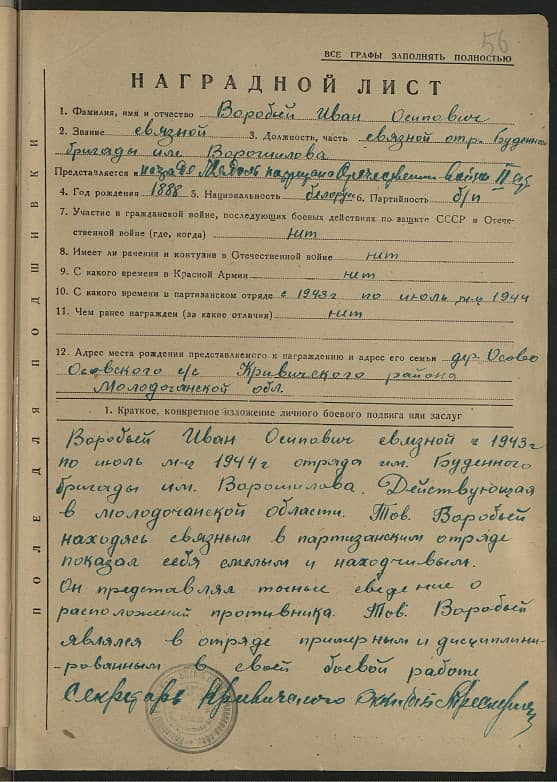 56
ВСЕ ГРАФЫ ЗАПОЛНЯТЬ ПОЛНОСТЬЮ
НАГРАДНОЙ ЛИСТ
1. Фамилия, имя и отчество Воробый Иван Осипович
2. Звание связной 3. Должность, часть связной отр. Буденно
бригады им. Ворошилова
Представляется к Медаль партизана Отечественной войны II ст
4. Год рождения 1888 5. Национальность белорус 6. Партийность б/п
7. Участие в гражданской войне, последующих боевых действиях по защите СССР и Отече-
ственной войне (где, когда) нит
8. Имеет ли ранения и контузии в Отечественной войне нит
9. С какого времени в Красной Армии нит
10. С какого времени в партизанском отряде с 1943г по июль м-ц 1944
11. Чем ранее награжден (за какие отличия) нит
12. Адрес места рождения представляемого к награждению и адрес его семьи дер. Осово
Осовского с/с Кривичского района
Молодочанской обл.
1. Краткое, конкретное изложение личного боевого подвига или заслуг
Воробый Иван Осипович связной с 1943г
по июль м-ц 1944г отряда им. Буденного
бригады им. Ворошилова. Действующая
в молодочанской области. Тов. Воробый
находясь связным в партизанским отряде
показал себя смелым и находчивым.
Он представлял точные сведение о
расположений противника. Тов. Воробый
являлся в отряде примирным и дисциплини-
-рованным в своей боевой работе
Секретарь Кривичского
ПОЛЕ ДЛЯ ПОДШИВКИ